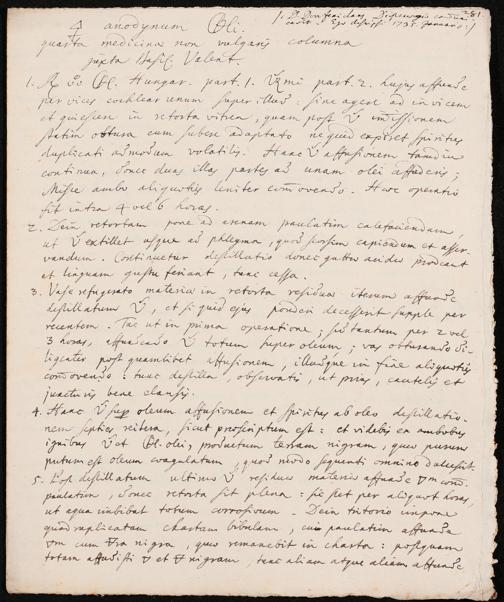 281.
anodynum
quarta medicina non vulgaris columna
juxta Basil. Valent.
1. Hungar. part. 1. part. 2. hujus affunde
per vices cochlear unum super illud: sine agere ad invicem
et quiescere in retorta vitrea, quam post immissionem
statim obtura cum subere adaptato ne quid expiret spiritus
duplicati admodum volatilis. Hanc affusionem tamdiu
continua, donec duas illas partes ad unam olei affuderis;
Misce ambo aliquoties leniter commovendo. Haec operatio
fit intra 4 vel 6 horas.
2. Dein retortam pone ad arenam paulatim calefaciendam,
ut extillet usque ad phlegma, quod seorsim capiendum et asser-
vandum. Continuetur destillatio donec guttae acidae prodeant
et linguam gustu feriant, tunc cessa.
3. Vase refrigerato materiae in retorta residuae iterum affunde
destillatum, et si quid ejus ponderi decesserit supple per
recentem. Fac ut in prima operatione; sed tantum per 2 vel
3 horas, affundendo totum super oleum; vas obturando di-
ligenter post quamlibet affusionem, illudque in fine aliquoties
commovendo: tunc destilla, observatis, ut prius, cautelis et
juncturis bene clausis.
4. Hanc super oleum affusionem et spiritus ab oleo destillatio-
nem septies reitera, sicut praescriptum est: et videbis ex ambobus
ignibus et olei, productum terram nigram, quae purum
putum est oleum coagulatum, quod modo sequenti omnino dulcescit.
5. Post destillatum ultimo residuae materiae affunde com.
paulatim, donec retorta sit plena: sic stet per aliquot horas,
ut aqua imbibat totum corrosivum. Dein tritorio impone
quadruplicatam chartam bibulam, cui paulatim affunde
cum nigra, quae remanebit in charta: postquam
totam affudisti et nigram, tunc aliam atque aliam affunde